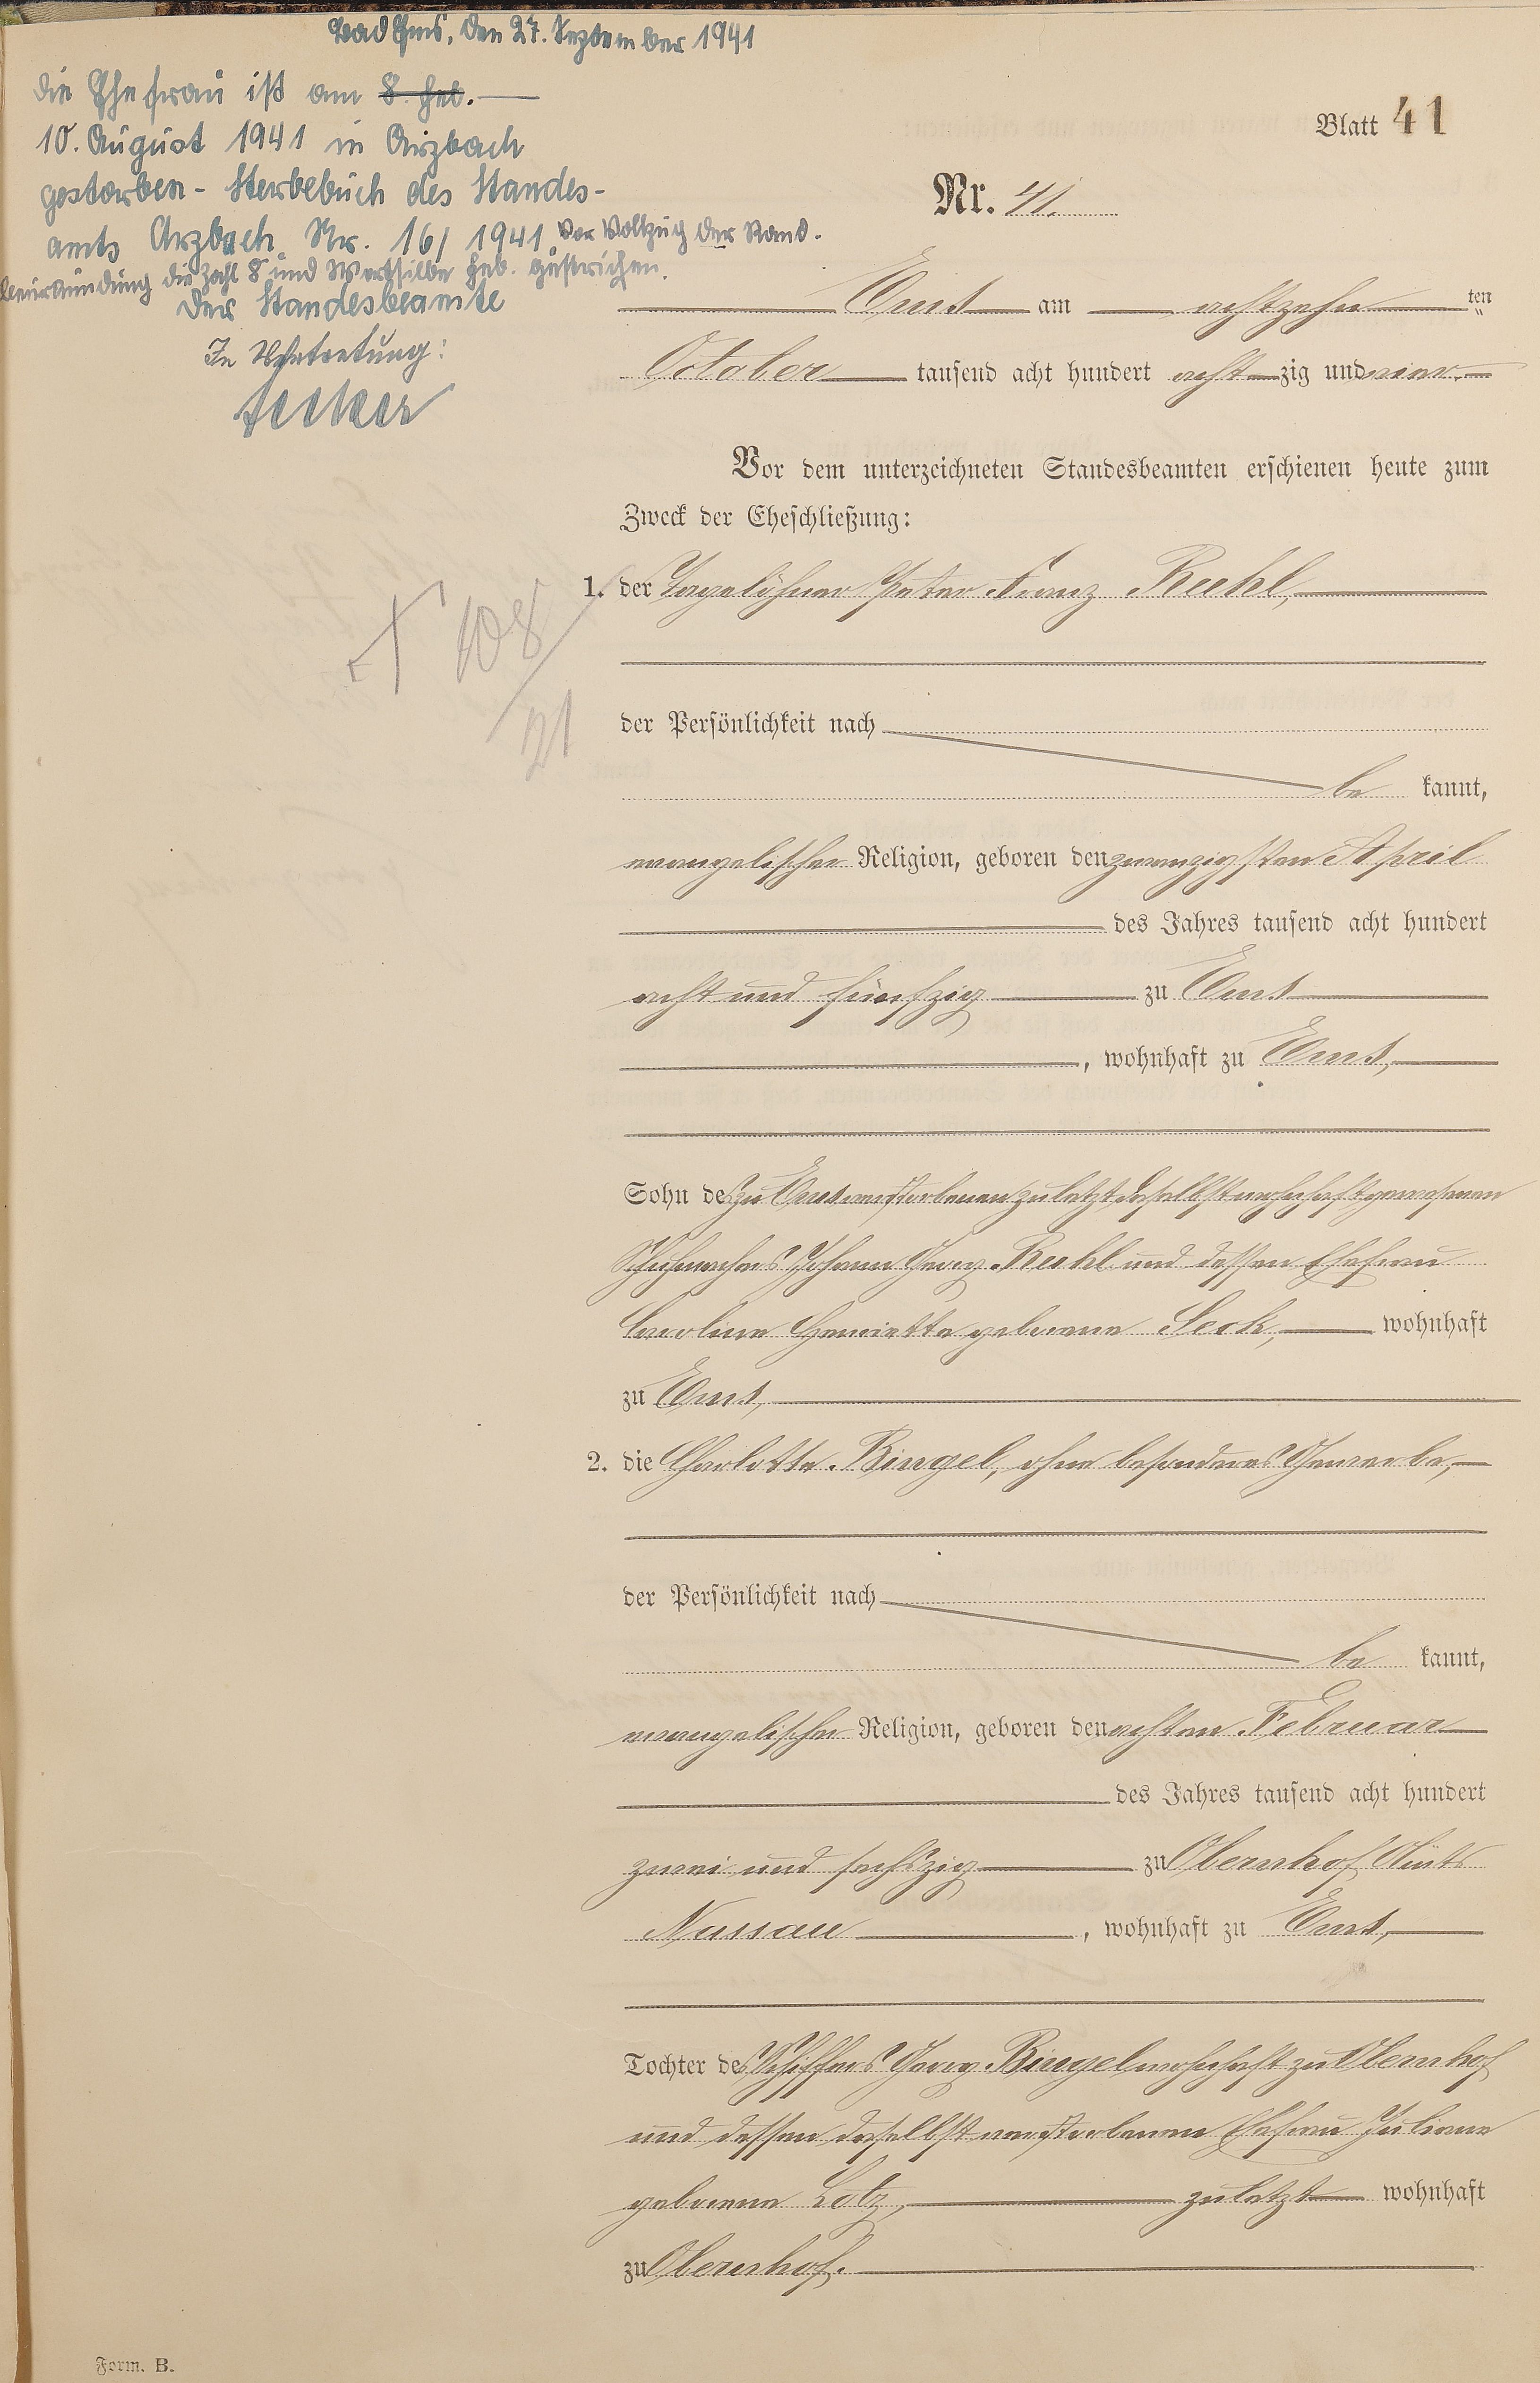 Bad Ems, den 27. September 1941
die Ehefrau ist am 8. Feb.
10. August 1941 in Arzbach
gestorben - Sterbebuch des Standes-
amts Arzbach Nr. 16/1941. Vor Vollzug der Rand-
beurkundung die Zahl 8 und Wortsilbe Feb. gestrichen.
Der Standesbeamte
In Vertretung:
Blatt 41
Nr. 41.
Ems am achtzehnten
October tausend acht hundert acht zig und vier.
Vor dem unterzeichneten Standesbeamten erschienen heute zum
Zweck der Eheschließung:
1. der Tagelöhner Peter Franz Ruhl,
+ 108/21
der Persönlichkeit nach
be kannt,
evangelischer Religion, geboren den zwanzigsten April
des Jahres tausend acht hundert
acht und fünfzig zu Ems
, wohnhaft zu Ems,
Sohn des zu Ems verstorbenen zuletzt daselbst wohnhaft gewesenen
Schuhmachers Johann Georg Ruhl und dessen Ehefrau
Caroline Henriette geborene Seck, wohnhaft
zu Ems,
2. die Charlotte Bingel, ohne besonderes Gewerbe,
der Persönlichkeit nach
be kannt,
evangelischer Religion, geboren den achten Februar
des Jahres tausend acht hundert
zwei und sechszig zu Obernhof Amts
Nassau, wohnhaft zu Ems,
Tochter des Schiffers Georg Bingel wohnhaft zu Obernhof
und dessen daselbst verstorbenen Ehefrau Juliane
geborene Lotz, zuletzt wohnhaft
zu Obernhof.
Form. B.